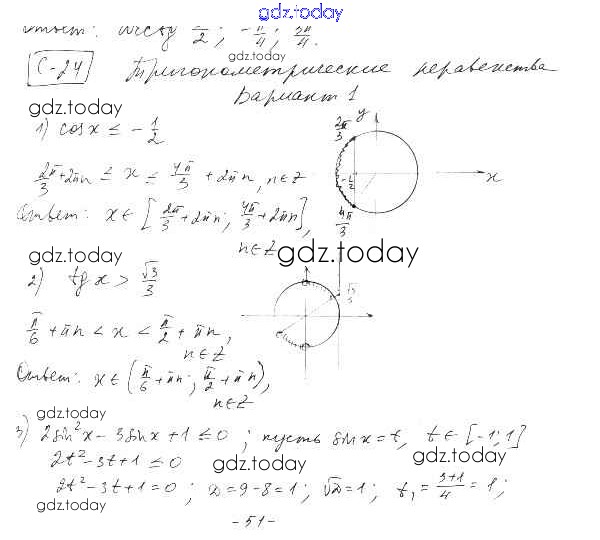 gdz.today
Ответ: между π/2; -π/4; 3π/4.
gdz.today
С-24 Тригонометрические неравенства
Вариант 1
gdz.today
1) cos x ≤ -1/2
2π/3 + 2πn ≤ x ≤ 4π/3 + 2πn, n∈Z
Ответ: x∈[2π/3 + 2πn; 4π/3 + 2πn],
n∈Z
y
2π/3
-1/2
x
4π/3
gdz.today
gdz.today
2) tg x > √3/3
√3/3
π/6 + πn < x < π/2 + πn,
n∈Z
gdz.today
Ответ: x∈(π/6 + πn; π/2 + πn),
n∈Z
gdz.today
3) 2sin²x - 3sinx + 1 ≤ 0; пусть sinx = t, t∈[-1;1]
2t² - 3t + 1 ≤ 0
gdz.today
gdz.today
2t² - 3t + 1 = 0; D = 9 - 8 = 1; √D = 1; t₁ = 3+1/4 = 1;
gdz.today
- 51 -